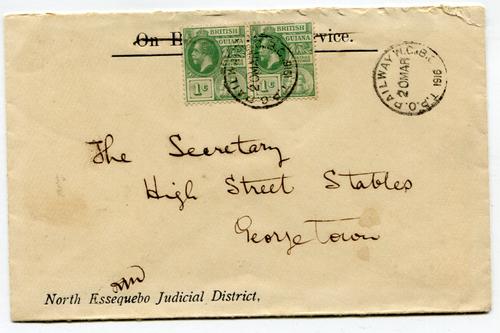 On              rvice.
BRITISH GUIANA BRITISH GUIANA
1¢ 1¢
RAILWAY 20 MAR 1916 T.P.O.
RAILWAY W.C.B. 20 MAR 1916 T.P.O.
The Secretary
High Street Stables
Georgetown
North Essequebo Judicial District,